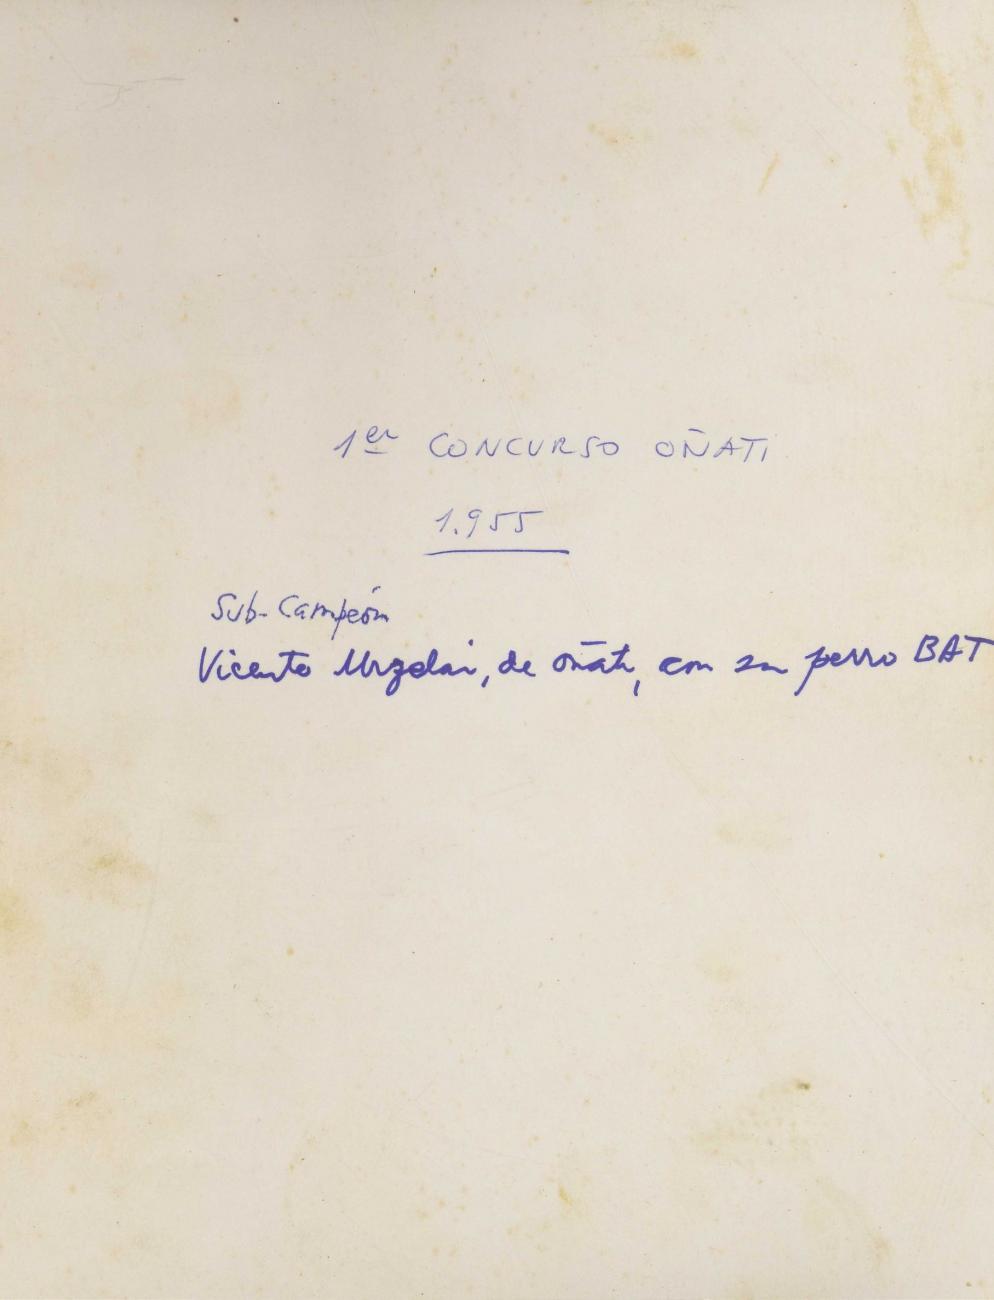 1er CONCURSO OÑATI
1.955
Sub-Campeón
Vicente Urzelai, de oñati, con su perro BAT